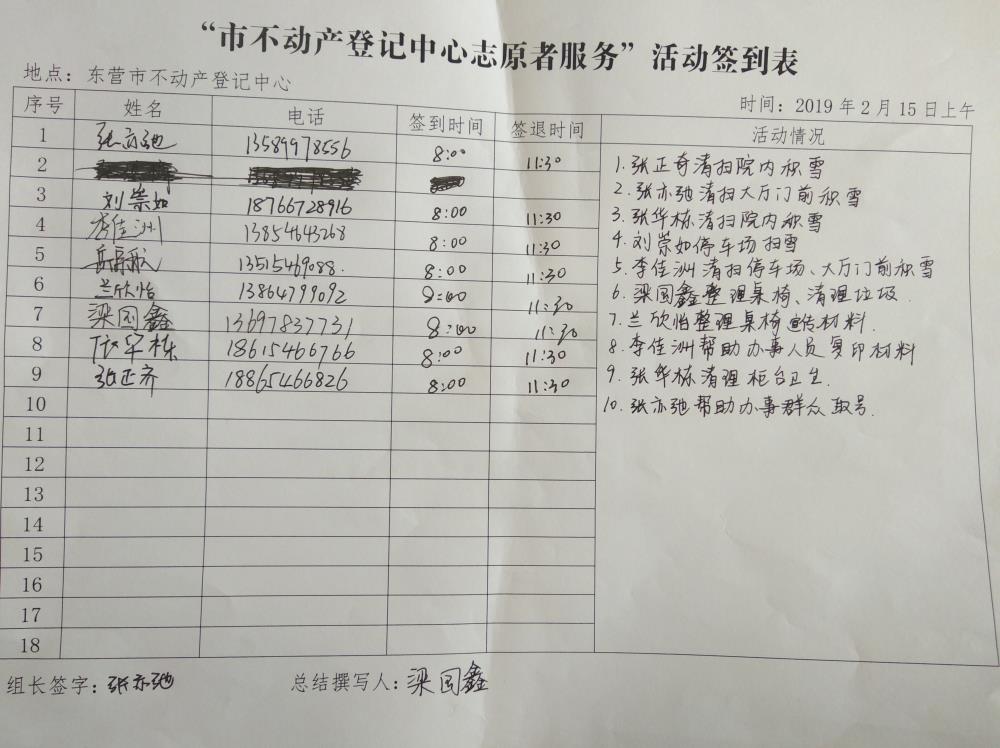 “市不动产登记中心志愿者服务”活动签到表
地点：东营市不动产登记中心
时间：2019年2月15日上午
序号 姓名 电话 签到时间 签退时间 活动情况
1 张亦弛 13589978556 8:00 11:30
2
3 刘崇如 18766728916 8:00 11:30
4 李佳洲 13854643268 8:00 11:30
5 13515469088. 8:00 11:30
6 兰欣怡 13864799092 8:00 11:30
7 梁国鑫 13697837731 8:00 11:30
8 张华栋 18615466766 8:00 11:30
9 张正齐 18865466826 8:00 11:30
10
11
12
13
14
15
16
17
18
1.张正奇清扫院内积雪
2.张亦弛清扫大厅门前积雪
3.张华栋清扫院内积雪
4.刘崇如停车场扫雪
5.李佳洲清扫停车场、大厅门前积雪
6.梁国鑫整理桌椅、清理垃圾.
7.兰欣怡整理桌椅宣传材料.
8.李佳洲帮助办事人员复印材料
9.张华栋清理柜台卫生.
10.张亦弛帮助办事群众取号.
组长签字：张亦弛 总结撰写人：梁国鑫